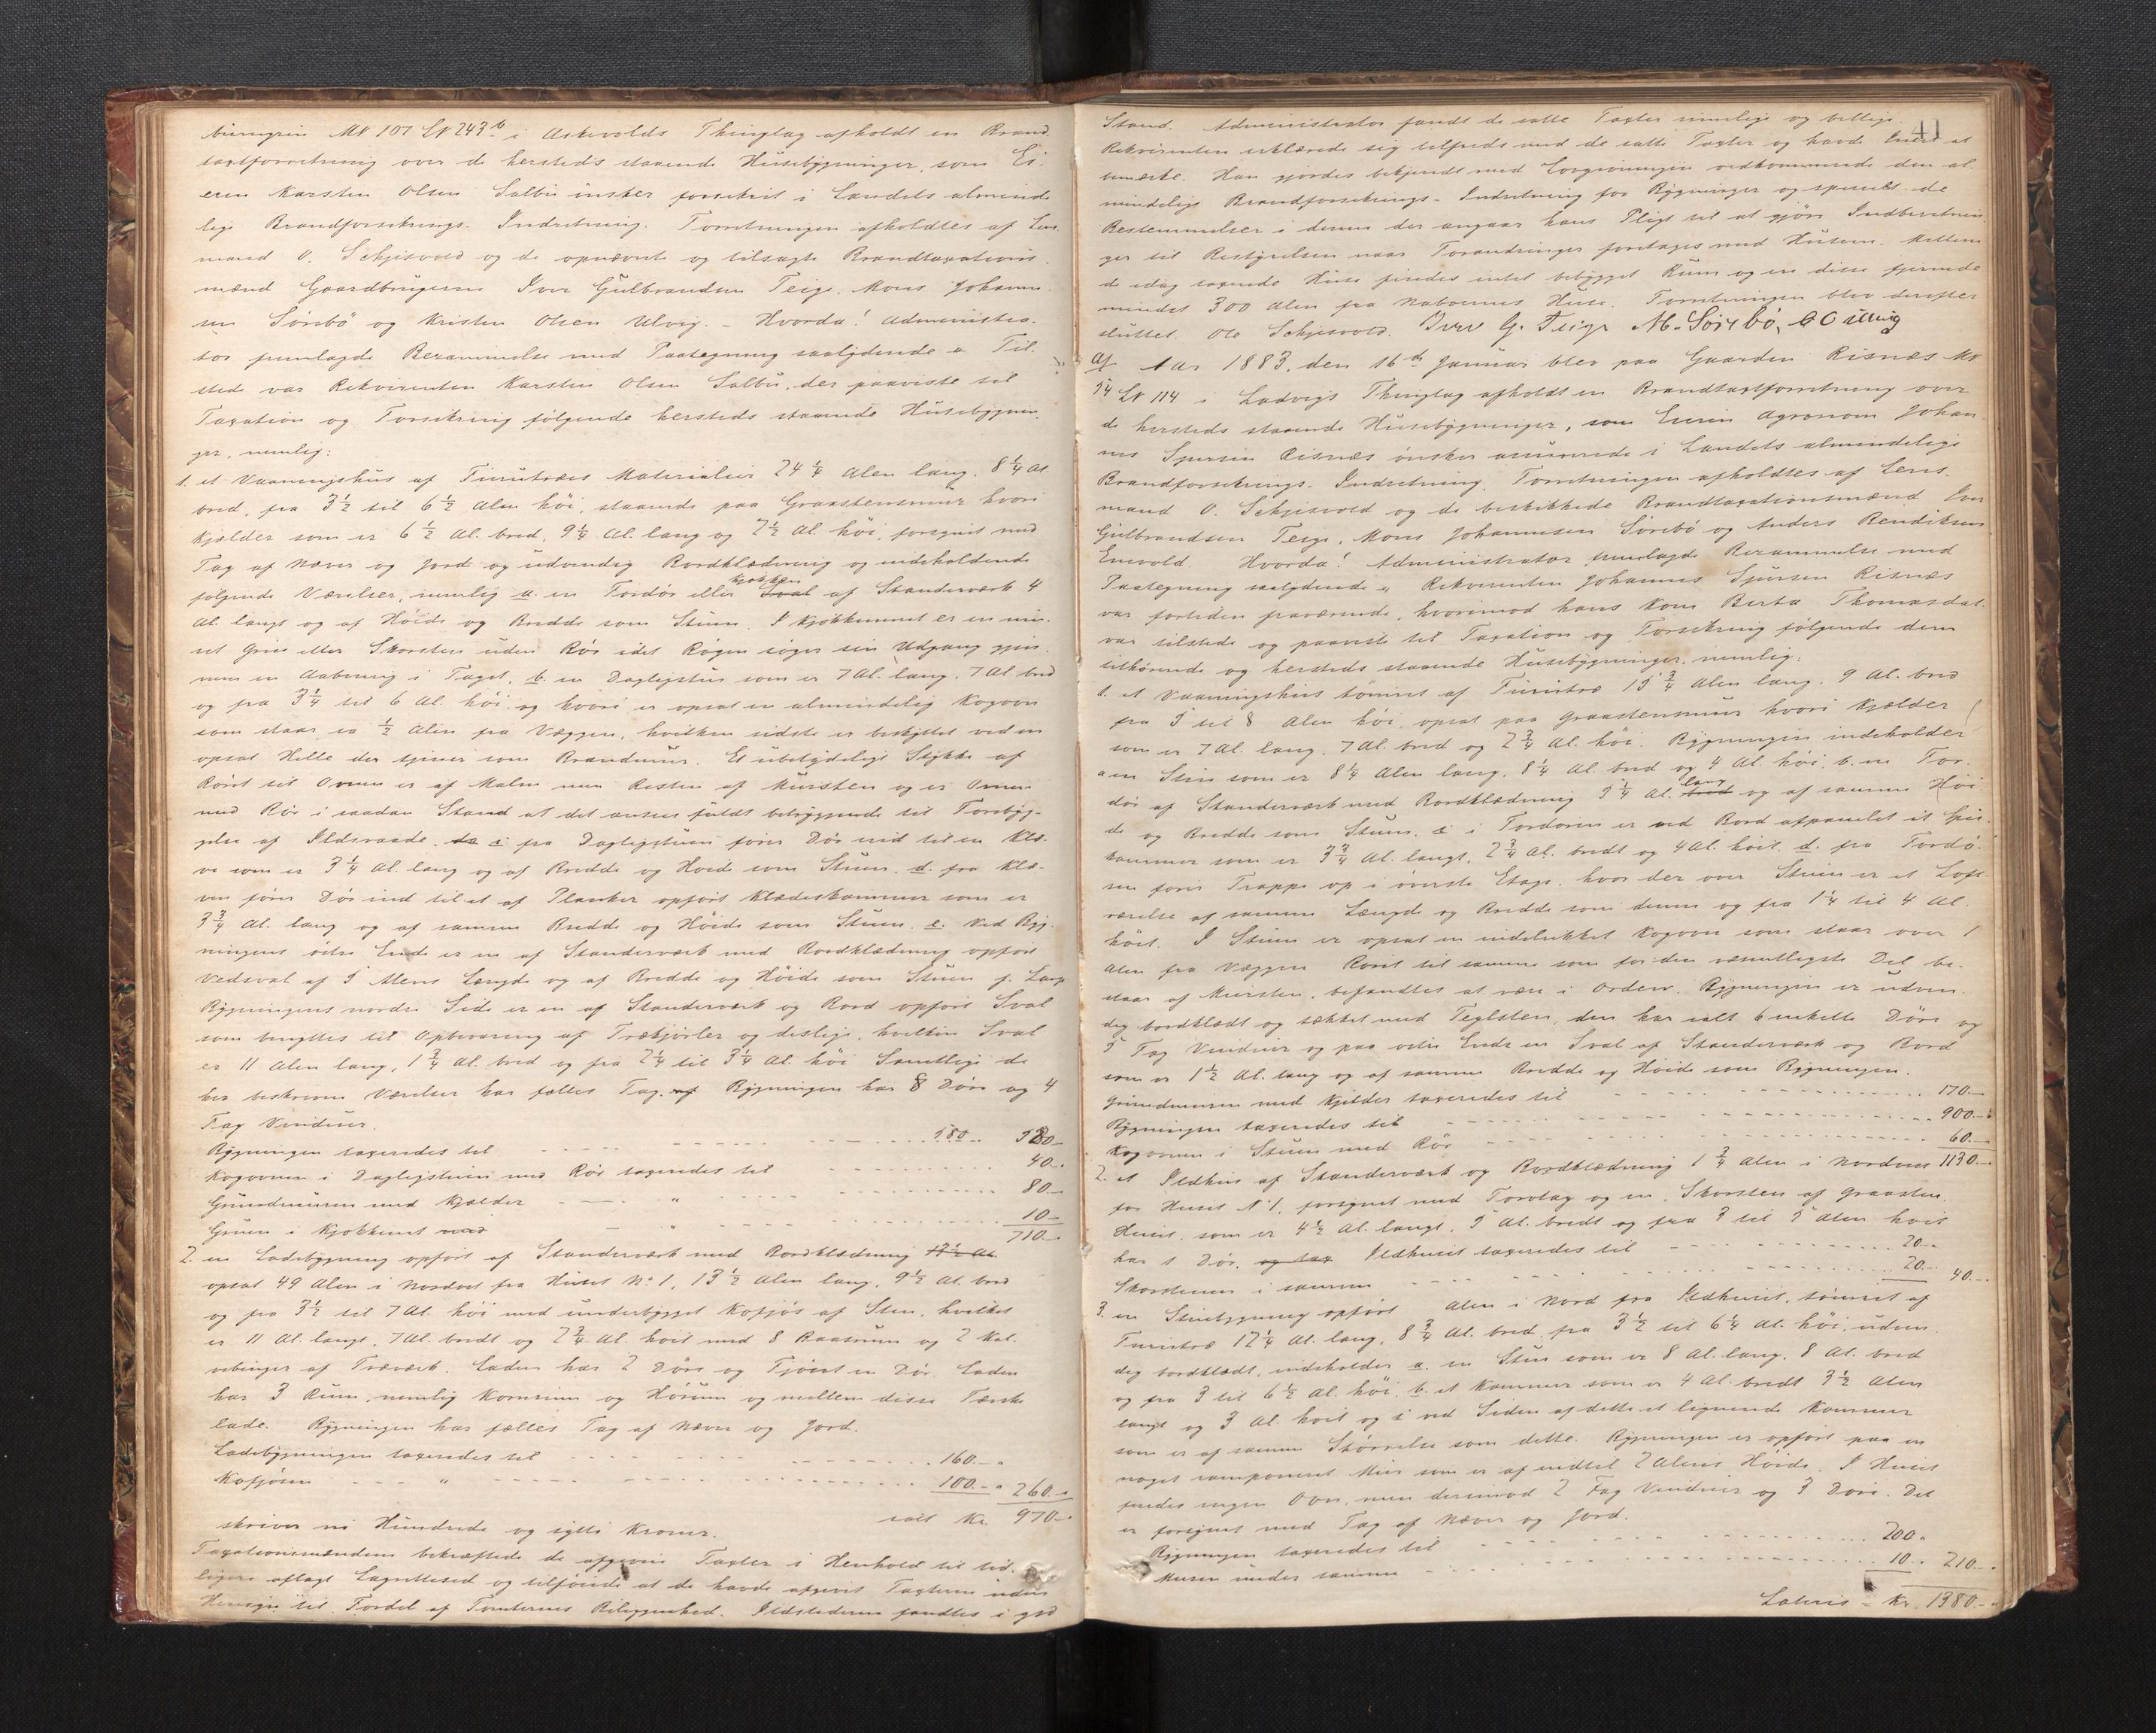 Mt 107 Lt 243 b i Askevolds Thinglag afholdt en Brand-
taxtforretning over de hersteds staaende Husebygninger, som Ei-
eren Karsten Olsen Salbu ønsker forsikret i Landets alminde-
lige Brandforsikrings-Indretning. Forretningen afholdtes af Lens-
mand O. Schjisvold og de opnævnte og tilsagte Brandtaxations-
mænd Gaardbrugerne Iver Gulbrandsen Teige, Mons Johanne-
sen Sørebö og Kristen Olsen Ulvig. – Hvorda! Administra-
tor fremlagde Berammelse med Paategning saalydende " Til-
stede var Rekvirenten Karsten Olsen Salbu, der paaviste til
Taxation og Forsikring følgende hersteds staaende Husebygnin-
ger, nemlig:
1. et Vaaningshus af Furutræs Materialier 24 1/4 Alen lang, 8 1/4 Al.
bred, fra 3 1/2 til 6 1/2 Alen høi, staaende paa Graastensmur hvori
Kjælder som er 6 1/2 Al. bred, 9 1/4 Al. lang og 2 1/2 Al. høi, forsynet med
Tag af Næver og Jord og udvendig Bordklædning og indeholdende
følgende Værelser, nemlig a. en Fordør eller Kjøkken Sval af Standerværk 4
Al. langt og af Høide og Bredde som Stuen. I Kjøkkenet er en mu-
ret Grue eller Skorsten uden Rör idet Røgen søger sin Udgang gjen-
nem en Aabning i Taget, b. en Dagligstue som er 7 Al. lang, 7 Al. bred
og fra 3 1/4 til 6 Al. höi og hvori er opsat en almindelig Kogovn
som staar ca 1/2 Alen fra Væggen, hvilken sidste er beskyttet ved en
opsat Helle der tjener som Brandmur. Et ubetydeligt Stykke af
Røret til Ovnen er af Malm men Resten af Mursten og er Ovnen
med Rör i saadan Stand at det ansees fuldt betryggende til Forebyg-
gelse af Ildsvaade. da c. fra Dagligstuen fører Dör ind til en Klæ-
ve som er 3 1/4 Al. lang og af Bredde og Høide som Stuen. d. fra Klæ-
ven fører Dör ind til et af Planker opført Klædeskammer som er
3 3/4 Al. lang og af samme Bredde og Höide som Stuen. e. Ved Byg-
ningens østre Ende er en af Standerværk med Bordklædning opført
Vedsval af 5 Alens Længde og af Bredde og Høide som Stuen f. Langs
Bygningens nordre Side er en af Standerværk og Bord opført Sval
som benyttes til Opbevaring af Trækjørler og deslige, hvilken Sval
er 11 Alen lang, 1 3/4 Al. bred og fra 2 1/4 til 3 1/4 Al. höi Samtlige de
her beskrevne Værelser har fælles Tag. af Bygningen har 8 Döre og 4
Fag Vinduer.
Bygningen taxeredes til 580 .. 580 -
Kogovnen i Dagligstuen med Rör taxeredes til 40 -
Grundmuren med Kjælder " 80 -
Gruen i Kjøkkenet med " 10 -
710 -
2. en Ladebygning opført af Standerværk med Bordklædning 13 1/2 Al
opsat 49 Alen i Nordost fra Huset No 1, 13 1/2 Alen lang, 9 1/2 Al. bred
og fra 3 1/2 til 7 Al. höi med underbygget Kofjøs af Sten, hvilket
er 11 Al. langt, 7 Al. bredt og 2 3/4 Al. høit med 8 Baasrum og 2 Kal-
vebinger af Træværk. Laden har 2 Døre og Fjøset en Dör. Laden
har 3 Rum, nemlig Kornrum og Hørum og mellem disse Tærske-
lade. Bygningen har fælles Tag af Næver og Jord.
Ladebygningen taxeredes til 160 -
Kofjøsen " 100 - 260 -
ialt Kr. 970 -
skriver ni Hundrede og sytti Kroner.
Taxationsmændene bekræftede de afgivne Taxter i Henhold til tid-
ligere aflagt Lagrettesed og tilføiede at de havde afgivet Taxterne uden
Hensyn til Fordel af Tomternes Beliggenhed. Ildstederne fandtes i god
41
Stand. Administrator fandt de satte Taxter rimelige og billige.
Rekvirenten erklærede sig tilfreds med de satte Taxter og havde Intet at
bemærke. Han gjordes bekjendt med Lovgivningen vedkommende den al-
mindelige Brandforsikrings-Indretning for Bygninger og specielt de
Bestemmelser i denne der angaar hans Pligt til at gjøre Indberetnin-
ger til Bestyrelsen naar Forandringer foretages med Husene. Mellem
de idag taxerede Huse findes intet bebygget Rum og er disse fjernede
mindst 300 Alen fra Naboernes Huse. Forretningen blev derefter
sluttet. Ole Schjisvold. Iver G. Teige M. Sørebö. K O Ulvig
Aar 1883, den 16de Januar blev paa Gaarden Risnæs Mt
14 Lt 114 i Ladvigs Thinglag afholdt en Brandtaxtforretning over
de hersteds staaende Husebygninger, som Eieren Agronom Johan-
nes Sjursen Risnæs ønsker assurerede i Landets almindelige
Brandforsikrings-Indretning. Forretningen afholdtes af Lens-
mand O. Schjisvold og de beskikkede Brandtaxationsmænd Iver
Gulbrandsen Teige, Mons Johannesen Sørebö og Anders Bendiksen
Hvorda! Administrator fremlagde Berammelse med
Paategning saalydende " Rekvirenten Johannes Sjursen Risnæs
var fortiden fraværende, hvorimod hans Kone Berta Thomasdat.
var tilstede og paaviste til Taxation og Forsikring følgende dem
tilhørende og hersteds staaende Husebygninger, nemlig:
1. et Vaaningshus tømret af Furutræ 15 3/4 Alen lang, 9 Al. bred
fra 5 til 8 Alen höi, opsat paa Graastensmur hvori Kjælder
som er 7 Al. lang, 7 Al. bred og 2 3/4 Al. höi. Bygningen indeholder
a. en Stue som er 8 1/4 Alen lang, 8 1/4 Al. bred og 4 Al. höi. b. en For-
dör af Standerværk med Bordklædning 5 1/4 Al. bred lang og af samme Høi-
de og Bredde som Stuen. c i Fordøren er ved Bord afpanelet et Spis-
kammer som er 3 3/4 Al. langt, 2 3/4 Al. bredt og 4 Al. høit. d. fra Fordø-
ren fører Trappe op i øverste Etage, hvor der over Stuen er et Loft-
værelse af samme Længde og Bredde som denne og fra 1 1/4 til 4 Al.
höit. I Stuen er opsat en indelukket Kogovn som staar over 1
Alen fra Væggen Røret til samme som for den væsentligste Del be-
staar af Mursten, befandtes at være i Orden. Bygningen er udven-
dig bordklædt og tækket med Teglsten, den har ialt 6 enkelte Döre og
5 Fag Vinduer og paa østre Ende en Sval af Standerværk og Bord
som er 1 1/2 Al. lang og af samme Bredde og Höide som Bygningen.
Grundmuren med Kjelder taxeredes til 170 -
Bygningen taxeredes til 900 -
Kogovnen i Stuen med Rör 60 -
2. et Ildhus af Standerværk og Bordklædning 1 3/4 Alen i Norden 1130 -
for Huset N 1, forsynet med Torvtag og en Skorsten af Graasten.
Huset, som er 4 1/2 Al. langt, 5 Al. bredt og fra 3 til 5 Alen høit
har 1 Dör. og tax Ildhuset taxeredes til 20 -
Skorstenen i samme 20 - 40 -
3. en Stuebygning opført Alen i Nord fra Ildhuset, tömret af
Furutræ 12 1/4 Al. lang, 8 3/4 Al. bred, fra 3 1/2 til 6 1/4 Al. höi, udven-
dig bordklædt, indeholder a. en Stue som er 8 Al. lang, 8 Al. bred
og fra 3 til 6 1/2 Al. höi, b. et Kammer som er 4 Al. bredt 3 1/2 Alen
langt og 3 Al. høit og c ved Siden af dette et lignende Kammer
som er af samme Størrelse som dette. Bygningen er opført paa en
noget ramponeret Mur som er af indtil 2 Alens Høide. I Huset
findes ingen Ovn, men derimod 2 Fag Vinduer og 3 Döre. Det
er forsynet med Tag af Næver og Jord.
Bygningen taxeredes til 200 -
Muren under samme 10 - 210 -
Lateris - Kr. 1380 -